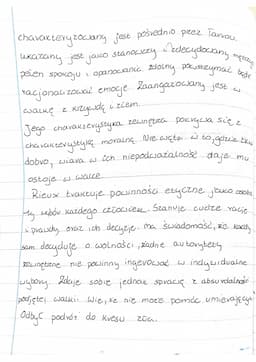 charakteryzowany jest pośrednio przez Tarrou,
ukazany jest jako stanowczy i zdecydowany mężczyzna
pełen spokoju i opanowania zdolny powstrzymać
racjonalizować emocje. Zaangażowany jest w
walkę z krzywdą i złem.
Jego charakterystyka zewnętrzna pokrywa się z
charakterystyką moralną. Nie wątpi w to, gdzie tkwi
dobro, wiara w ich niepodważalność daje mu
ostoję w walce.
Rieux traktuje powinności etyczne jako
wybór każdego człowieka. Szanuje cudze racje
i prawdy oraz ich decyzje. Ma świadomość, że każdy
sam decyduje o wolności, żadne autorytety
zewnętrzne nie powinny ingerować w indywidualne
wybory. Zdaje sobie jednak sprawę z absurdalności
podjętej walki. Wie, że nie może pomóc umierającym
Odbyć podróż do kresu zła.